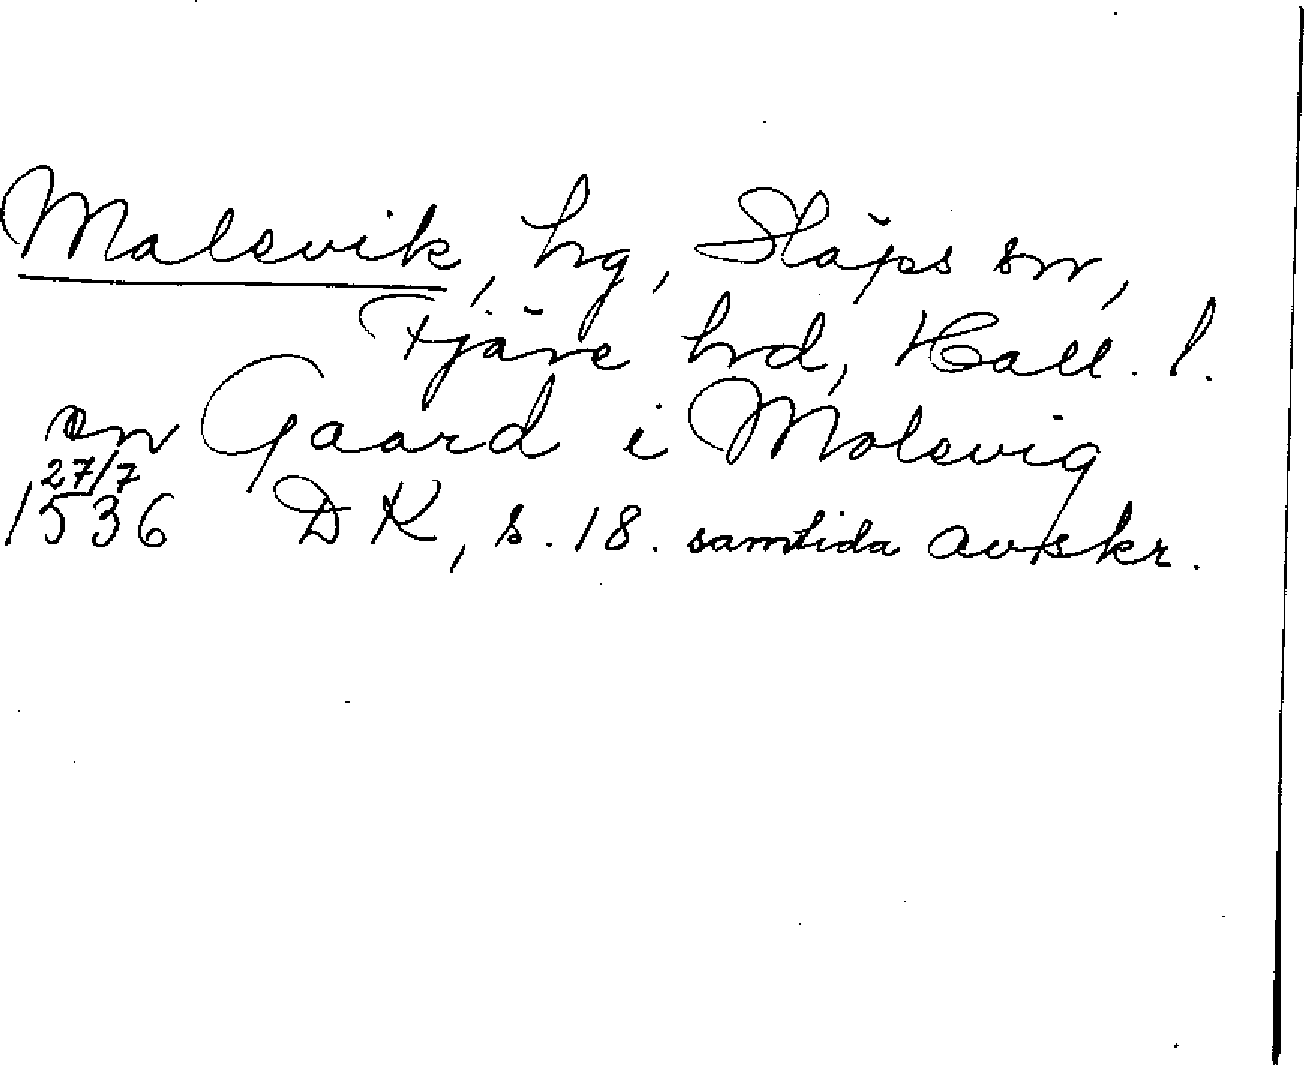 Malevik, hg, Släps sn,
Fjäre hd, Hall. l.
en Gaard i Malevig
27/7
1536 DK, s. 18. samtida avskr.